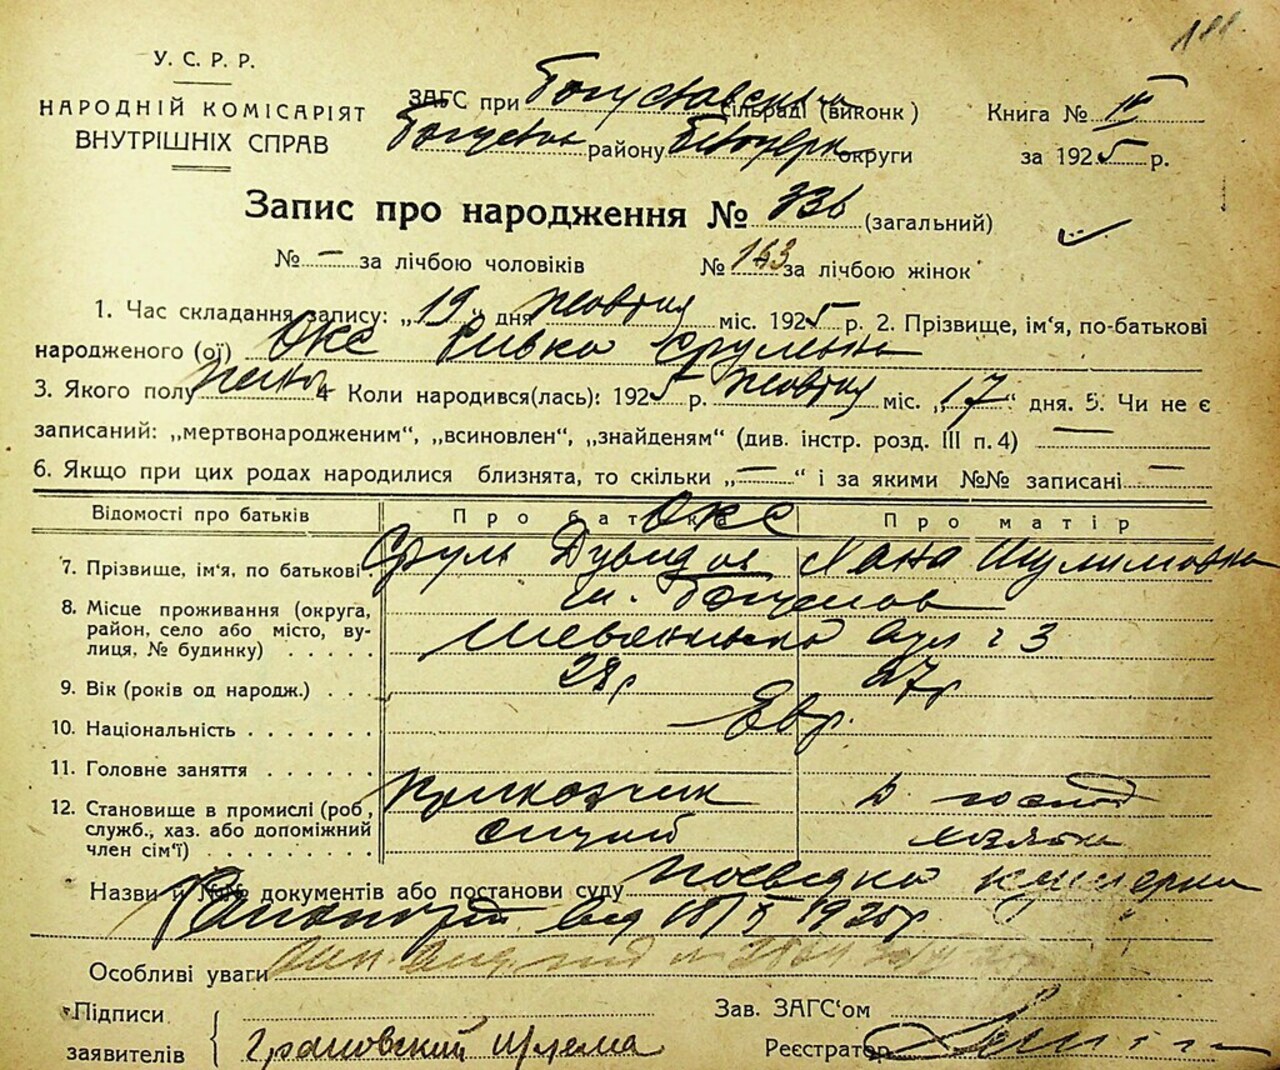 У. С. Р. Р.
НАРОДНІЙ КОМІСАРІЯТ
ВНУТРІШНІХ СПРАВ
ЗАГС при сільраді (виконк)
району округи
Книга № IV
за 1925 р.
Запис про народження № 336 (загальний)
№ — за лічбою чоловіків № 163 за лічбою жінок
1. Час складання запису: „19“ дня жовтня міс. 1925 р. 2. Прізвище, ім‘я, по-батькові
народженого (ої) Окс Ривка Срулевна
3. Якого полу жіно 4 Коли народився(лась): 1925 р. жовтня міс. „17“ дня. 5. Чи не є
записаний: „мертвонародженим“, „всиновлен“, „знайденям“ (див. інстр. розд. III п. 4) —
6. Якщо при цих родах народилися близнята, то скільки „—“ і за якими №№ записані —
Відомості про батьків Про батька Окс Про матір
7. Прізвище, ім‘я, по батькові. Сруль Дувидов Хана Шулимовна
8. Місце проживання (округа, м.
район, село або місто, ву-
лиця, № будинку) . . . . . Шевченківська вул ч 3
9. Вік (років од народж.) . . . 28 р 27 р
10. Національність . . . . . . . Евр.
11. Головне заняття . . . . . .
12. Становище в промислі (роб., Приказчик господ
служб., хаз. або допоміжний служб хазяйка
член сім‘ї) . . . . . . . . .
Назви й №№ документів або постанови суду посвідка акушерки
від 18/X 1925 р.
Особливі уваги
Підписи
заявителів Грановский Шлема
Зав. ЗАГС‘ом
Реєстратор